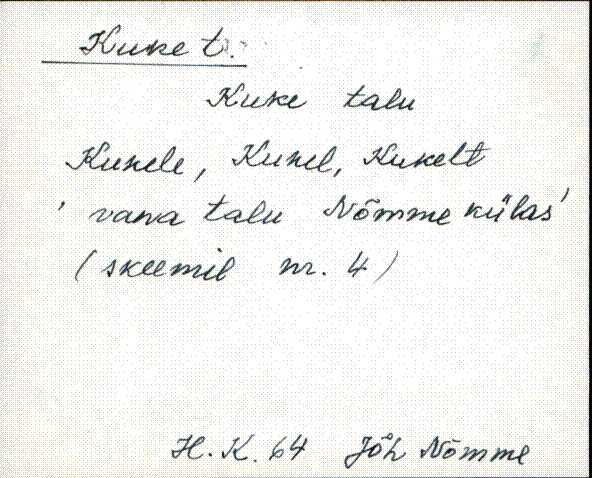 Kuke t.
Kuke talu
Kukele, Kukel, Kukelt
' vana talu Nõmme külas'
(skeemil nr. 4)
H. K. 64 Jõh Nõmme